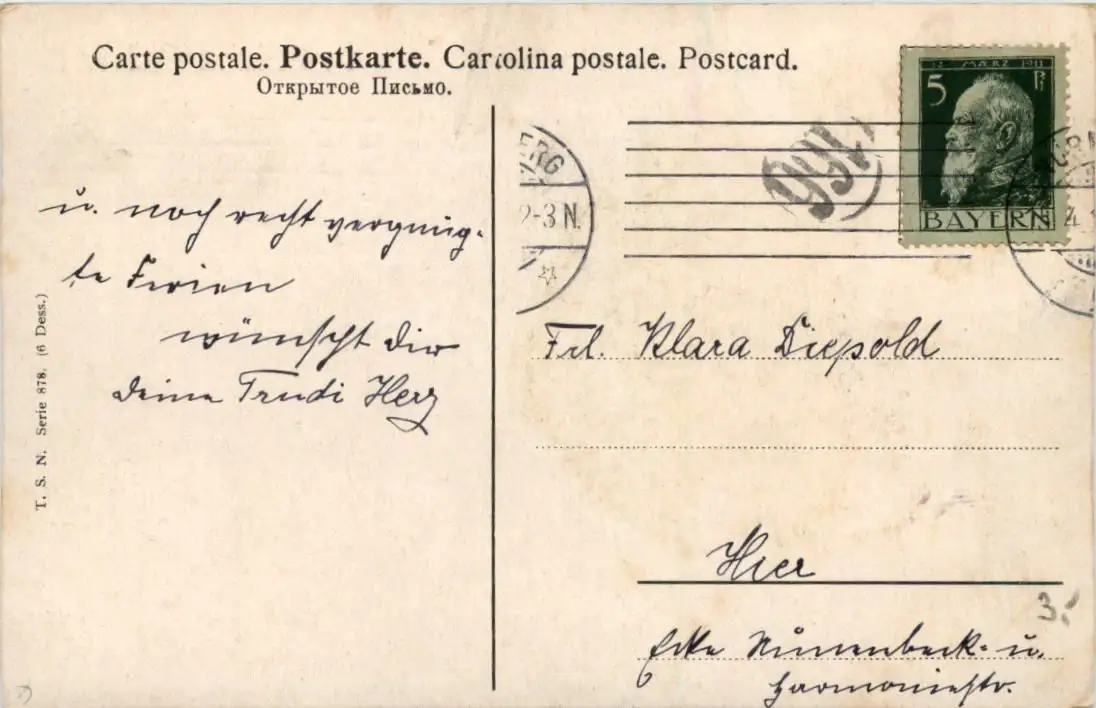 Carte postale. Postkarte. Cartolina postale. Postcard.
Открытое Письмо.
12. MÄRZ 1911
5 Pf
BAYERN
ERG
2-3 N.
166
u. noch recht vergnüg-
te Ferien
wünscht dir
deine Trudi Herz
T. S. N. Serie 878. (6 Dess.)
Frl. Klara Diepold
Hier
3.-
Ecke Nunnenbeck- u.
Harmoniestr.